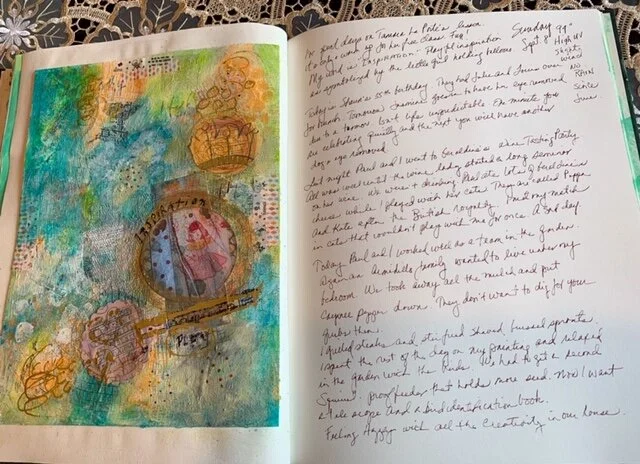 INSPIRATION
PLAY
Sunday 99°
Sept. 8 High UV
slight wind
NO RAIN
Since June
I'm good days on Tamara La Porte's lesson
it's only a warm up for her free class Tag!
My word is "INSPIRATION". Playful inspiration
as symbolized by the little girl holding balloons
Today is Shawn's 55th birthday. They had Julie and over
for lunch. Tomorrow Jasmine goes in to have her eye removed
due to a tumor. Life's unpredictable. One minute you
are celebrating quietly and the next you will have another
dog's eye removed.
Last night Paul and I went to Geraldine's wine Tasting Party
All was well until the wine lady started a long seminar
on her wine. We were drinking. Paul ate lots of Geraldine's
cheese while I played with her cats. They are called Pippa
and Kate after the British royalty. I met my match
in cats that wouldn't play with me for once. A sad day
Today Paul and I worked well as a team in the garden.
Again an Armadillo family wanted to live under my
bedroom. We took away all the mulch and put
Cayenne pepper down. They don't want to dig for your
grubs then.
I grilled steaks and stir fried shaved brussel sprouts.
I spent the rest of the day on my painting and relaxed
in the garden with the birds. We had to get a second
Squirrel proof feeder that holds more seed. Now I want
a tele scope and a bird identification book.
Feeling Happy with all the Creativity in our house.